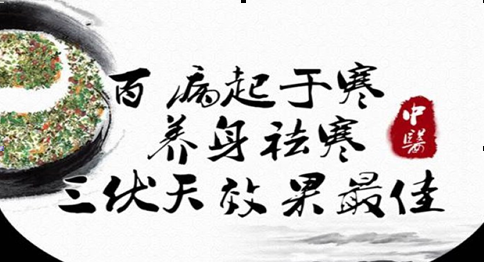 百病起于寒
养身祛寒
三伏天效果最佳
中醫